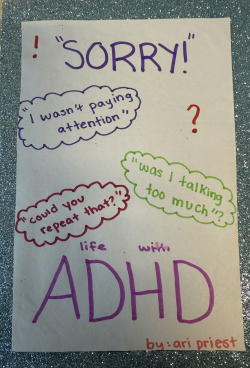 ! "SORRY!"
"I wasn't paying
attention"
?
"was I talking
too much"?
"could you
repeat that?"
life with
ADHD
by: ari priest